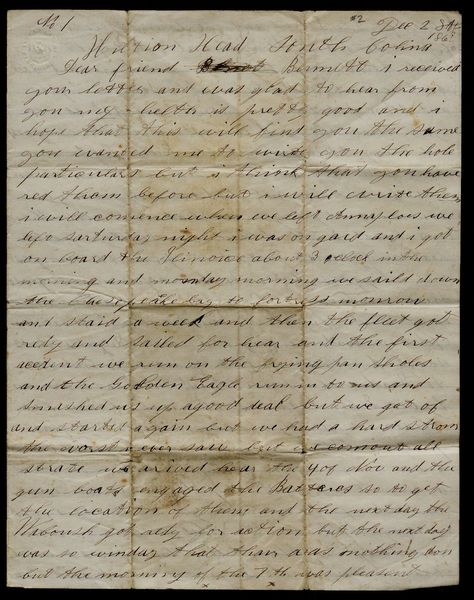 No 1 #2 Dec 2
186
Hinton Head South Colina
Dear friend Burnett i received
your letter and was glad to hear from
you my helth is pretty good and i
hope that this will find you the same
you wanted me to write you the hole
particulars but i think that you have
red them before but i will write them
i will comence when we left Annyloes we
left sarturday night i was on gard and i got
on board the Ilinoice about 3 clock in the
morning and monday morning we saild down
the Chesopeake bay to fortress monrow
and staid a week and then the fleet got
redy and sailed for hear and the first
accident we run on the frying pan sholes
and the Goolden Eagle run in to us and
smashed us up a good deal but we got of
and started again but we had a hard strom
the worst i ever saw but we come out all
strate we arived hear the 4 of Nov and the
gun boats engaged the Batteres so to get
the location of them and the next day the
Waboush got redy for action but the next day
was so winday that thair was nothing don
but the morning of the 7th was pleasent